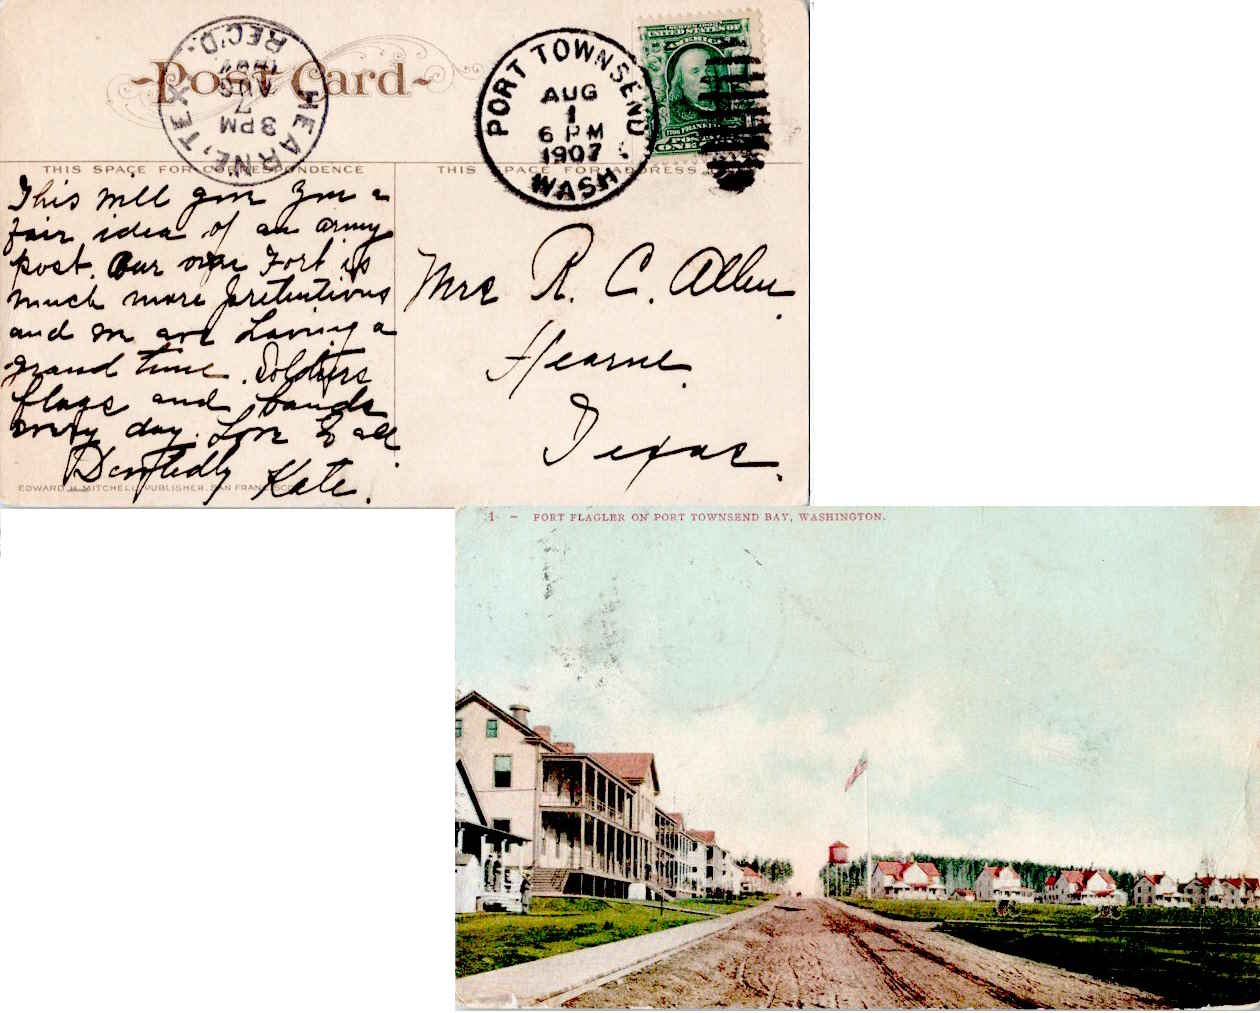 Post Card
HEARNE, TEX.
3 PM
AUG
7
1907
REC'D.
PORT TOWNSEND
AUG
1
6 PM
1907
WASH.
SERIES 1902
UNITED STATES OF
AMERICA
FRANKLIN
THIS SPACE FOR CORRESPONDENCE
THIS SPACE FOR ADDRESS
This will give you a
fair idea of an army
post. Our own Fort is
much more pretentious
and we are having a
grand time. Soldiers
flags and bands
every day. Love to all
Devotedly
Kate.
Mrs R. C. Allen.
Hearne.
Texas.
EDWARD H. MITCHELL, PUBLISHER, SAN FRANCISCO
1 – FORT FLAGLER ON PORT TOWNSEND BAY, WASHINGTON.